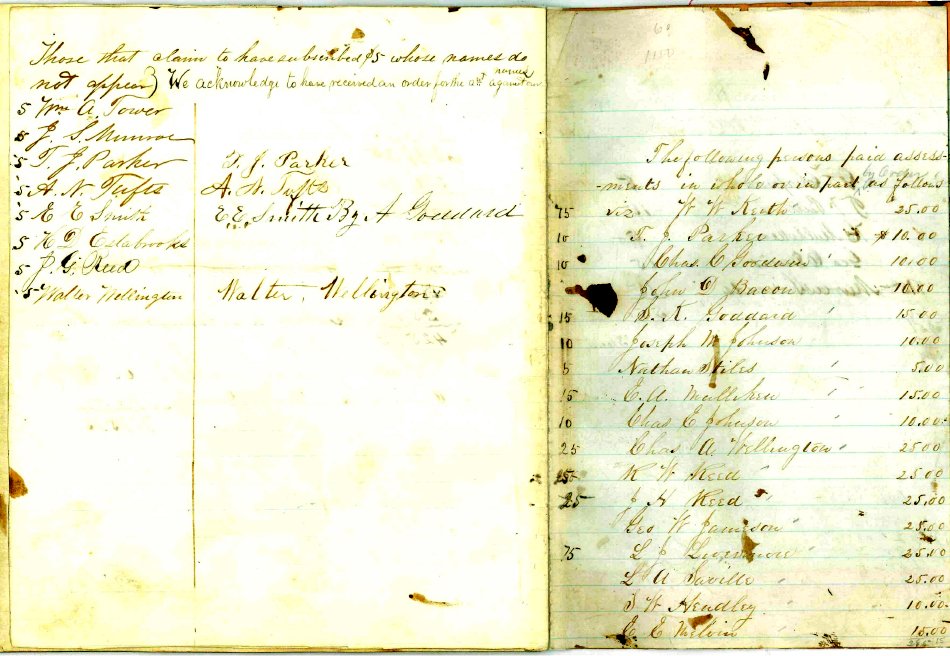 Those that claim to have subscribed $5 whose names do
not appear) We acknowledge to have received an order for the am't named against our
5 Wm A. Tower
5 J. S. Munroe
5 T. J. Parker T. J. Parker
5 A. N. Tufts A. N. Tufts
5 E E Smith E. E. Smith By A Goddard
5 H D Estabrooks
5 J. G. Reed
5 Walter Wellington Walter Wellington
60
The following persons paid assess-
-ments in whole or in part as follows
75 viz W W Keith 25.00
10 T. J. Parker $10.00
10 Chas. C Goodwin 10.00
John D Bacon 10.00
15 S. K. Goddard 15.00
10 Joseph M Johnson 10.00
5 Nathan Stiles 5.00
15 E. A. Mulliken 15.00
10 Chas E Johnson 10.00
25 Chas A Wellington 25.00
250 R W Reed 25.00
25 J H Reed 25.00
Geo W Jameson 25.00
75 L J Livermore 25.00
L A Saville 25.00
J W Hendley 10.00
E E Melvin 15.00